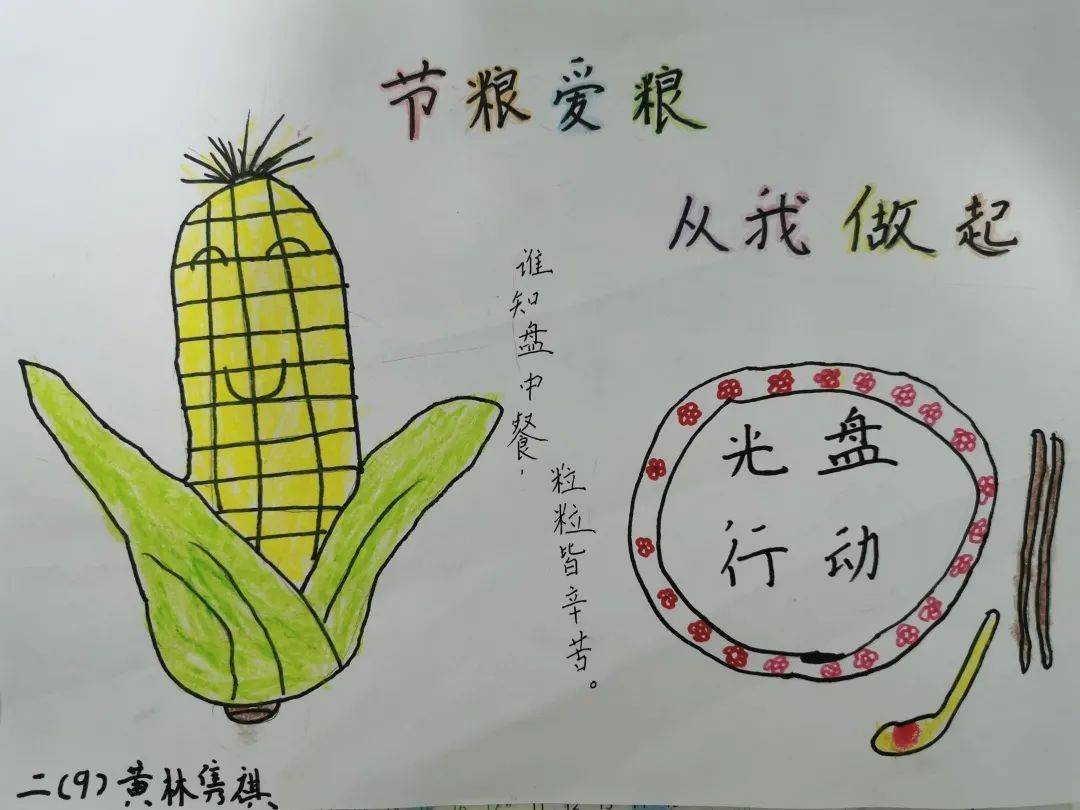 节粮爱粮
从我做起
谁知盘中餐，
粒粒皆辛苦。
光盘
行动
二(9)黄林隽祺